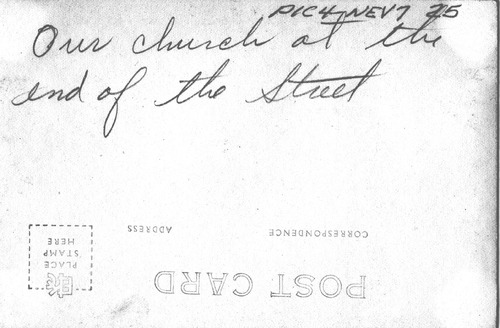 PIC4 NEV7 25
Our church at the
end of the Street
CORRESPONDENCE
ADDRESS
POST CARD
PLACE
STAMP
HERE